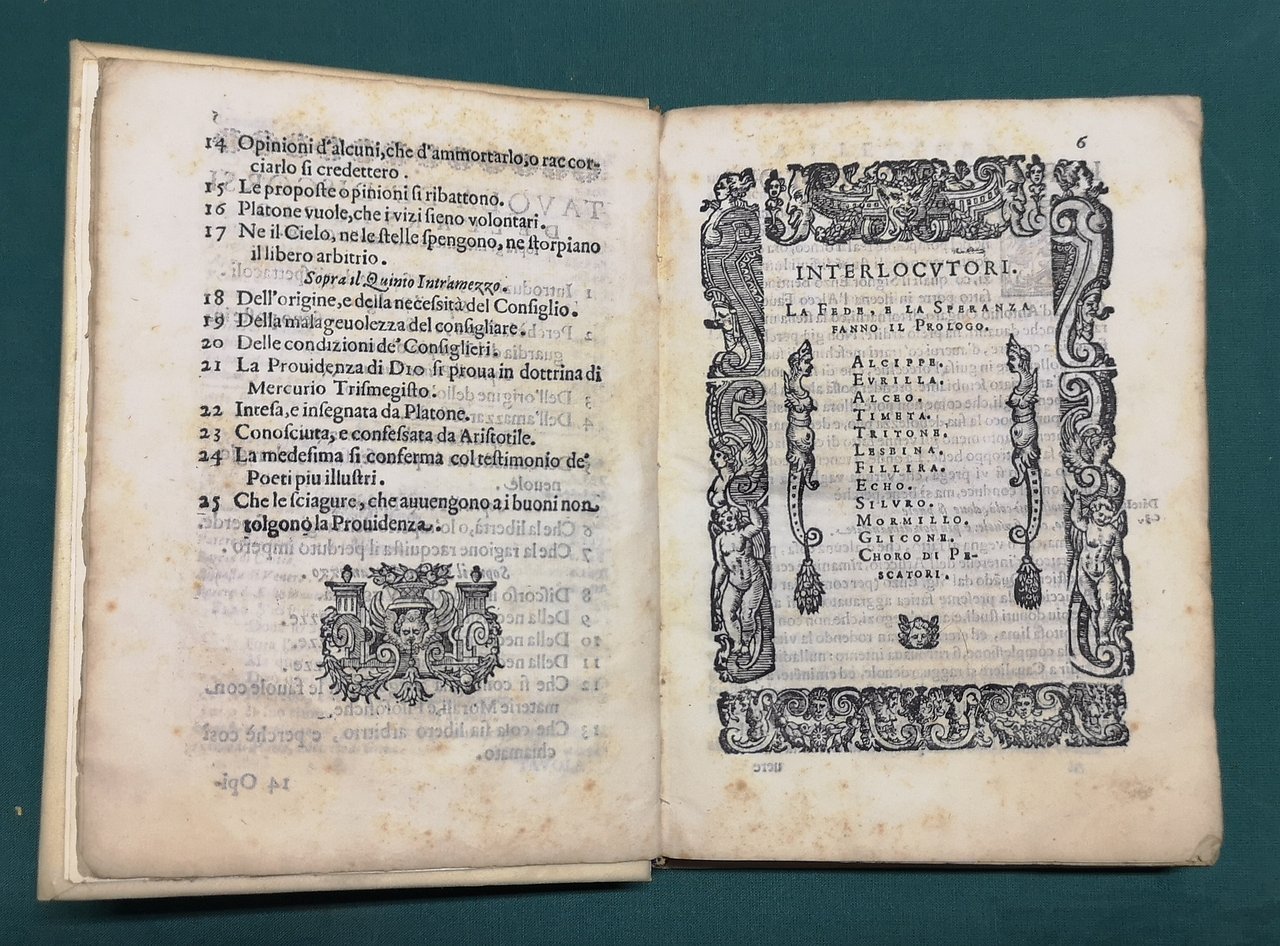 14 Opinioni d'alcuni, che d'ammortarlo, o raccor-
ciarlo si credettero.
15 Le proposte opinioni si ribattono.
16 Platone vuole, che i vizi sieno volontari.
17 Ne il Cielo, ne le stelle spengono, ne storpiano
il libero arbitrio.
Sopra il Quinto Intramezzo.
18 Dell'origine, e della necessità del Consiglio.
19 Della malageuolezza del consigliare.
20 Delle condizioni de' Consiglieri.
21 La Prouidenza di DIO si proua in dottrina di
Mercurio Trismegisto.
22 Intesa, e insegnata da Platone.
23 Conosciuta, e confessata da Aristotile.
24 La medesima si conferma col testimonio de'
Poeti piu illustri.
25 Che le sciagure, che auuengono a i buoni non
tolgono la Prouidenza.
6
INTERLOCVTORI.
LA FEDE, E LA SPERANZA
FANNO IL PROLOGO.
ALCIPPE.
EVRILLA.
ALCEO.
TIMETA.
TRITONE.
LESBINA.
FILLIRA.
ECHO.
SILVRO.
MORMILLO.
GLICONE.
CHORO DI PE-
SCATORI.